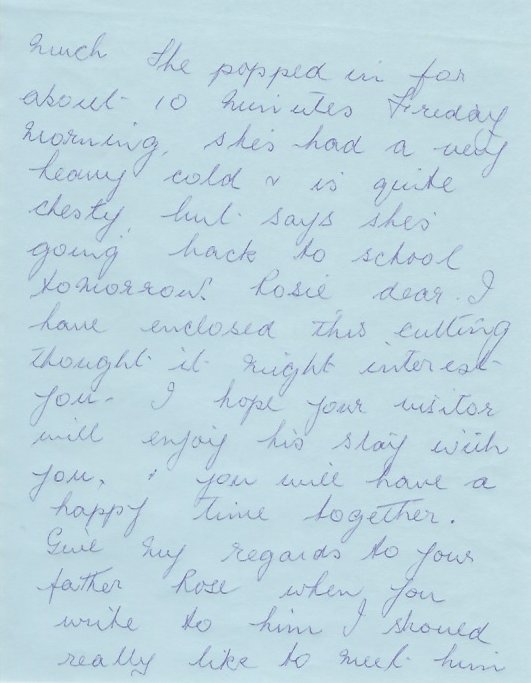 much She popped in for
about 10 minutes Friday
morning, she's had a very
heavy cold & is quite
chesty, but says she's
going back to school
tomorrow. Rosie, dear I
have enclosed this cutting
thought it might interest
you. I hope your visitor
will enjoy his stay with
you, & you will have a
happy time together.
Give my regards to your
father Rose when you
write to him I should
really like to meet him